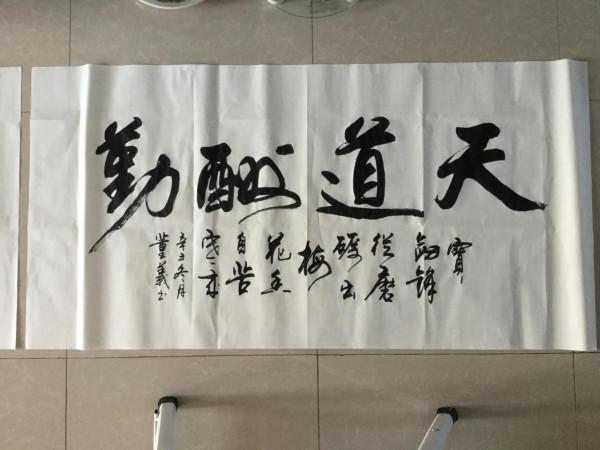 天道酬勤
寶
劍鋒
從磨
礪出
梅
花香
自苦
寒来
辛丑冬月
董義书